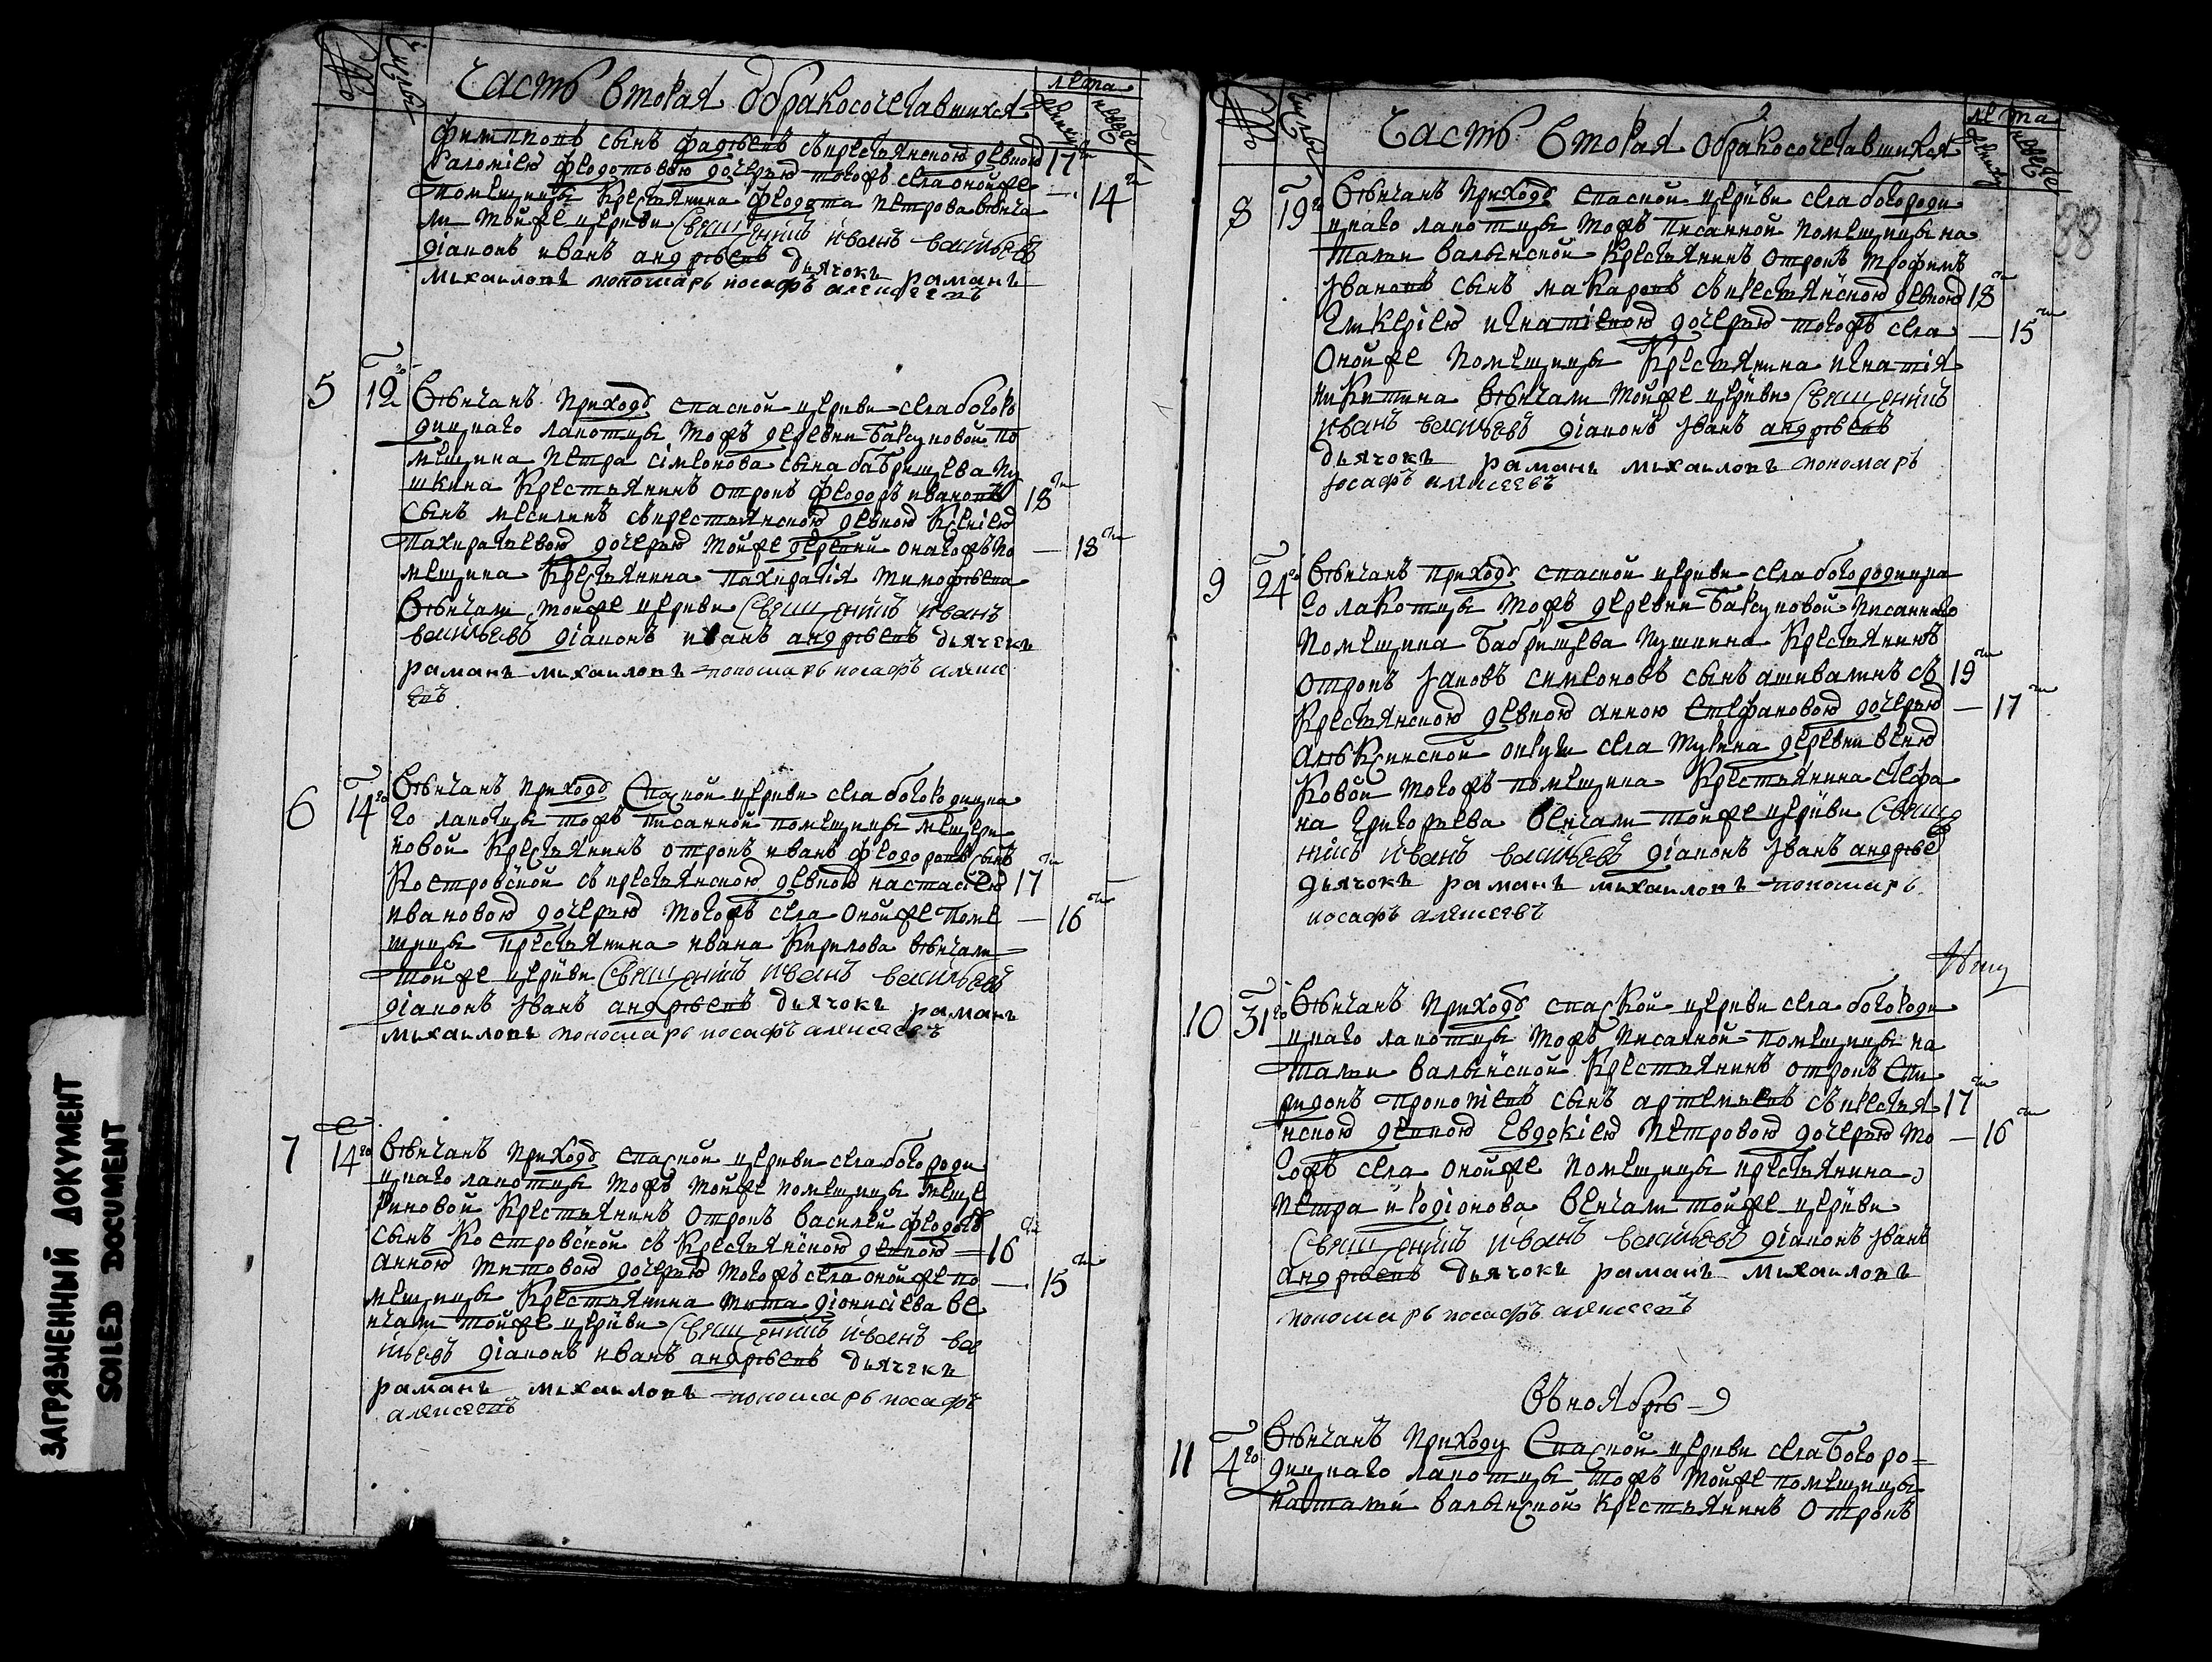 Часть вторая обракосочетавшихся
лета
филиповъ сынъ фадѣевъ съкрестьянскою девкою 17ти
Саломиею федотовою дочерью тогожъ села онойже
помещицы крестьянина федота петрова венча — 14ти
ли тойже церкви Священникъ иванъ васильевъ
діаконъ иванъ андрѣевъ дьячокъ раманъ
михаиловъ пономарь иосафъ алексеевъ
5 12го Вѣнчанъ приходу спаской церкви села богоро
дицкаго лакотцы тожъ деревни Бакуновой по
мещика петра сімеонова сына бабрищева пу
шкина крестьянинъ отрокъ федоръ ивановъ 18ти
сынъ съкрестьянскою девкою Ксениею
панкратьевою дочерью тойже деревни онагожъ по — 18ти
мещика крестьянина панкратія тимофѣева
Вѣнчали тойже церкви Священникъ иванъ
васильевъ діаконъ иванъ андрѣевъ дьячекъ
раманъ михаиловъ пономарь иосафъ алексе
евъ
6 14го Вѣнчанъ приходу Спаской церкви села богородицка
го лакотцы тожъ писанной помещицы мещери
новой крестьянинъ отрокъ иванъ федоровъ сынъ
Костровской съкрестьянскою девкою настасею 17ти
ивановою дочерью тогожъ села онойже поме — 16ти
щицы крестьянина ивана Кирилова вѣнчали
тойже церкви Священникъ иванъ васильевъ
діаконъ Iванъ андрѣевъ дьячокъ раманъ
михаиловъ пономарь иосафъ алексеевъ
7 14го Вѣнчанъ приходу спаской церкви села богороди
цкаго лакотцы тожъ тойже помещицы меще
риновой крестьянинъ отрокъ василей федоровъ
сынъ Костровской съ крестьянскою девкою 16ти
анною титовою дочерью тогожъ села онойже по — 15ти
мещицы крестьянина тита діонисіева ве
нчали тойже церкви Священникъ иванъ ва
ильевъ діаконъ иванъ андрѣевъ дьячекъ
раманъ михаиловъ пономарь иосафъ
алексеевъ
Часть вторая обракосочетавшихся
лета
88
8 19го Вѣнчанъ приходу спаской церкви села богороди
цкаго лакотцы тожъ писанной помещицы на
тальи валынской крестьянинъ отрокъ трофимъ
Iвановъ сынъ макаровъ съкрестьянскою девкою 18ти
Гликериею игнатіевою дочерью тогожъ села — 15ти
онойже помещицы крестьянина игнатія
никитина Вѣнчали тойже церкви Священникъ
иванъ васильевъ діаконъ Iванъ андрѣевъ
дьячокъ раманъ михаиловъ пономарь
Iосафъ алексеевъ
9 24го Вѣнчанъ приходу спаской церкви села богородицка
го лакотцы тожъ деревни Бакуновой писаннаго
помещика Бабрищева пушкина крестьянинъ
отрокъ Iаковъ симеоновъ сынъ съ 19ти
крестьянскою девкою анною стефановою дочерью — 17ти
села деревни
ковой тогожъ помещика крестьянина стефа
на григорьева венчали тойже церкви Свяще
нникъ иванъ васильевъ діаконъ Iванъ андрѣе
дьячокъ раманъ михаиловъ пономарь
иосафъ алексеевъ
10 31го Вѣнчанъ приходу спаской церкви села богороди
цкаго лакотцы тожъ писанной помещицы на
тальи валынской крестьянинъ отрокъ Спи
ридонъ прокопіевъ сынъ артемьевъ съкрестья 17ти
нскою девкою Евдокіею петровою дочерью то — 16ти
гожъ села онойже помещицы крестьянина
петра иродіонова венчали тойже церкви
Священникъ иванъ васильевъ діаконъ Iванъ
андрѣевъ дьячокъ раманъ михаиловъ
пономарь иосафъ алексеевъ
Въноябрѣ
11 4го Вѣнчанъ приходу Спаской церкви села Богоро=
дицкаго лакотцы тожъ тойже помещицы
натальи валынской крестьянинъ отрокъ
ЗАГРЯЗНЕННЫЙ ДОКУМЕНТ
SOILED DOCUMENT